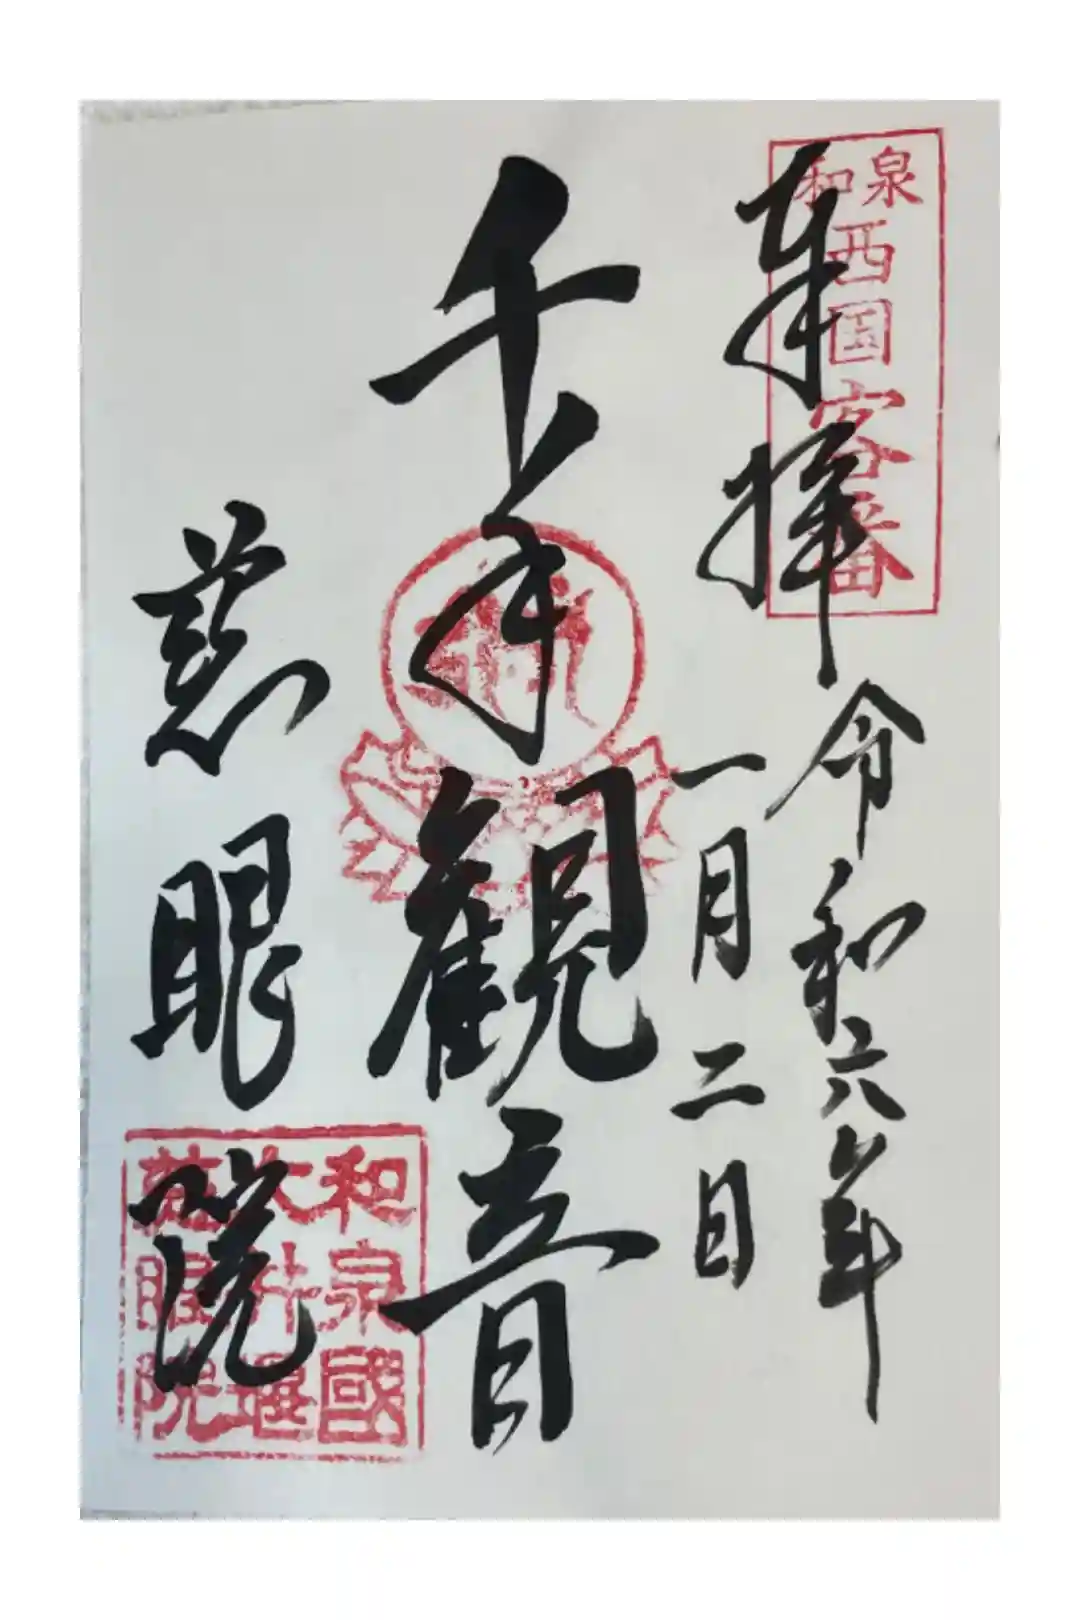 和泉
西国
客番
奉拝 令和六年
一月二日
千手観音
慈眼院
和泉國
大井堰
慈眼院